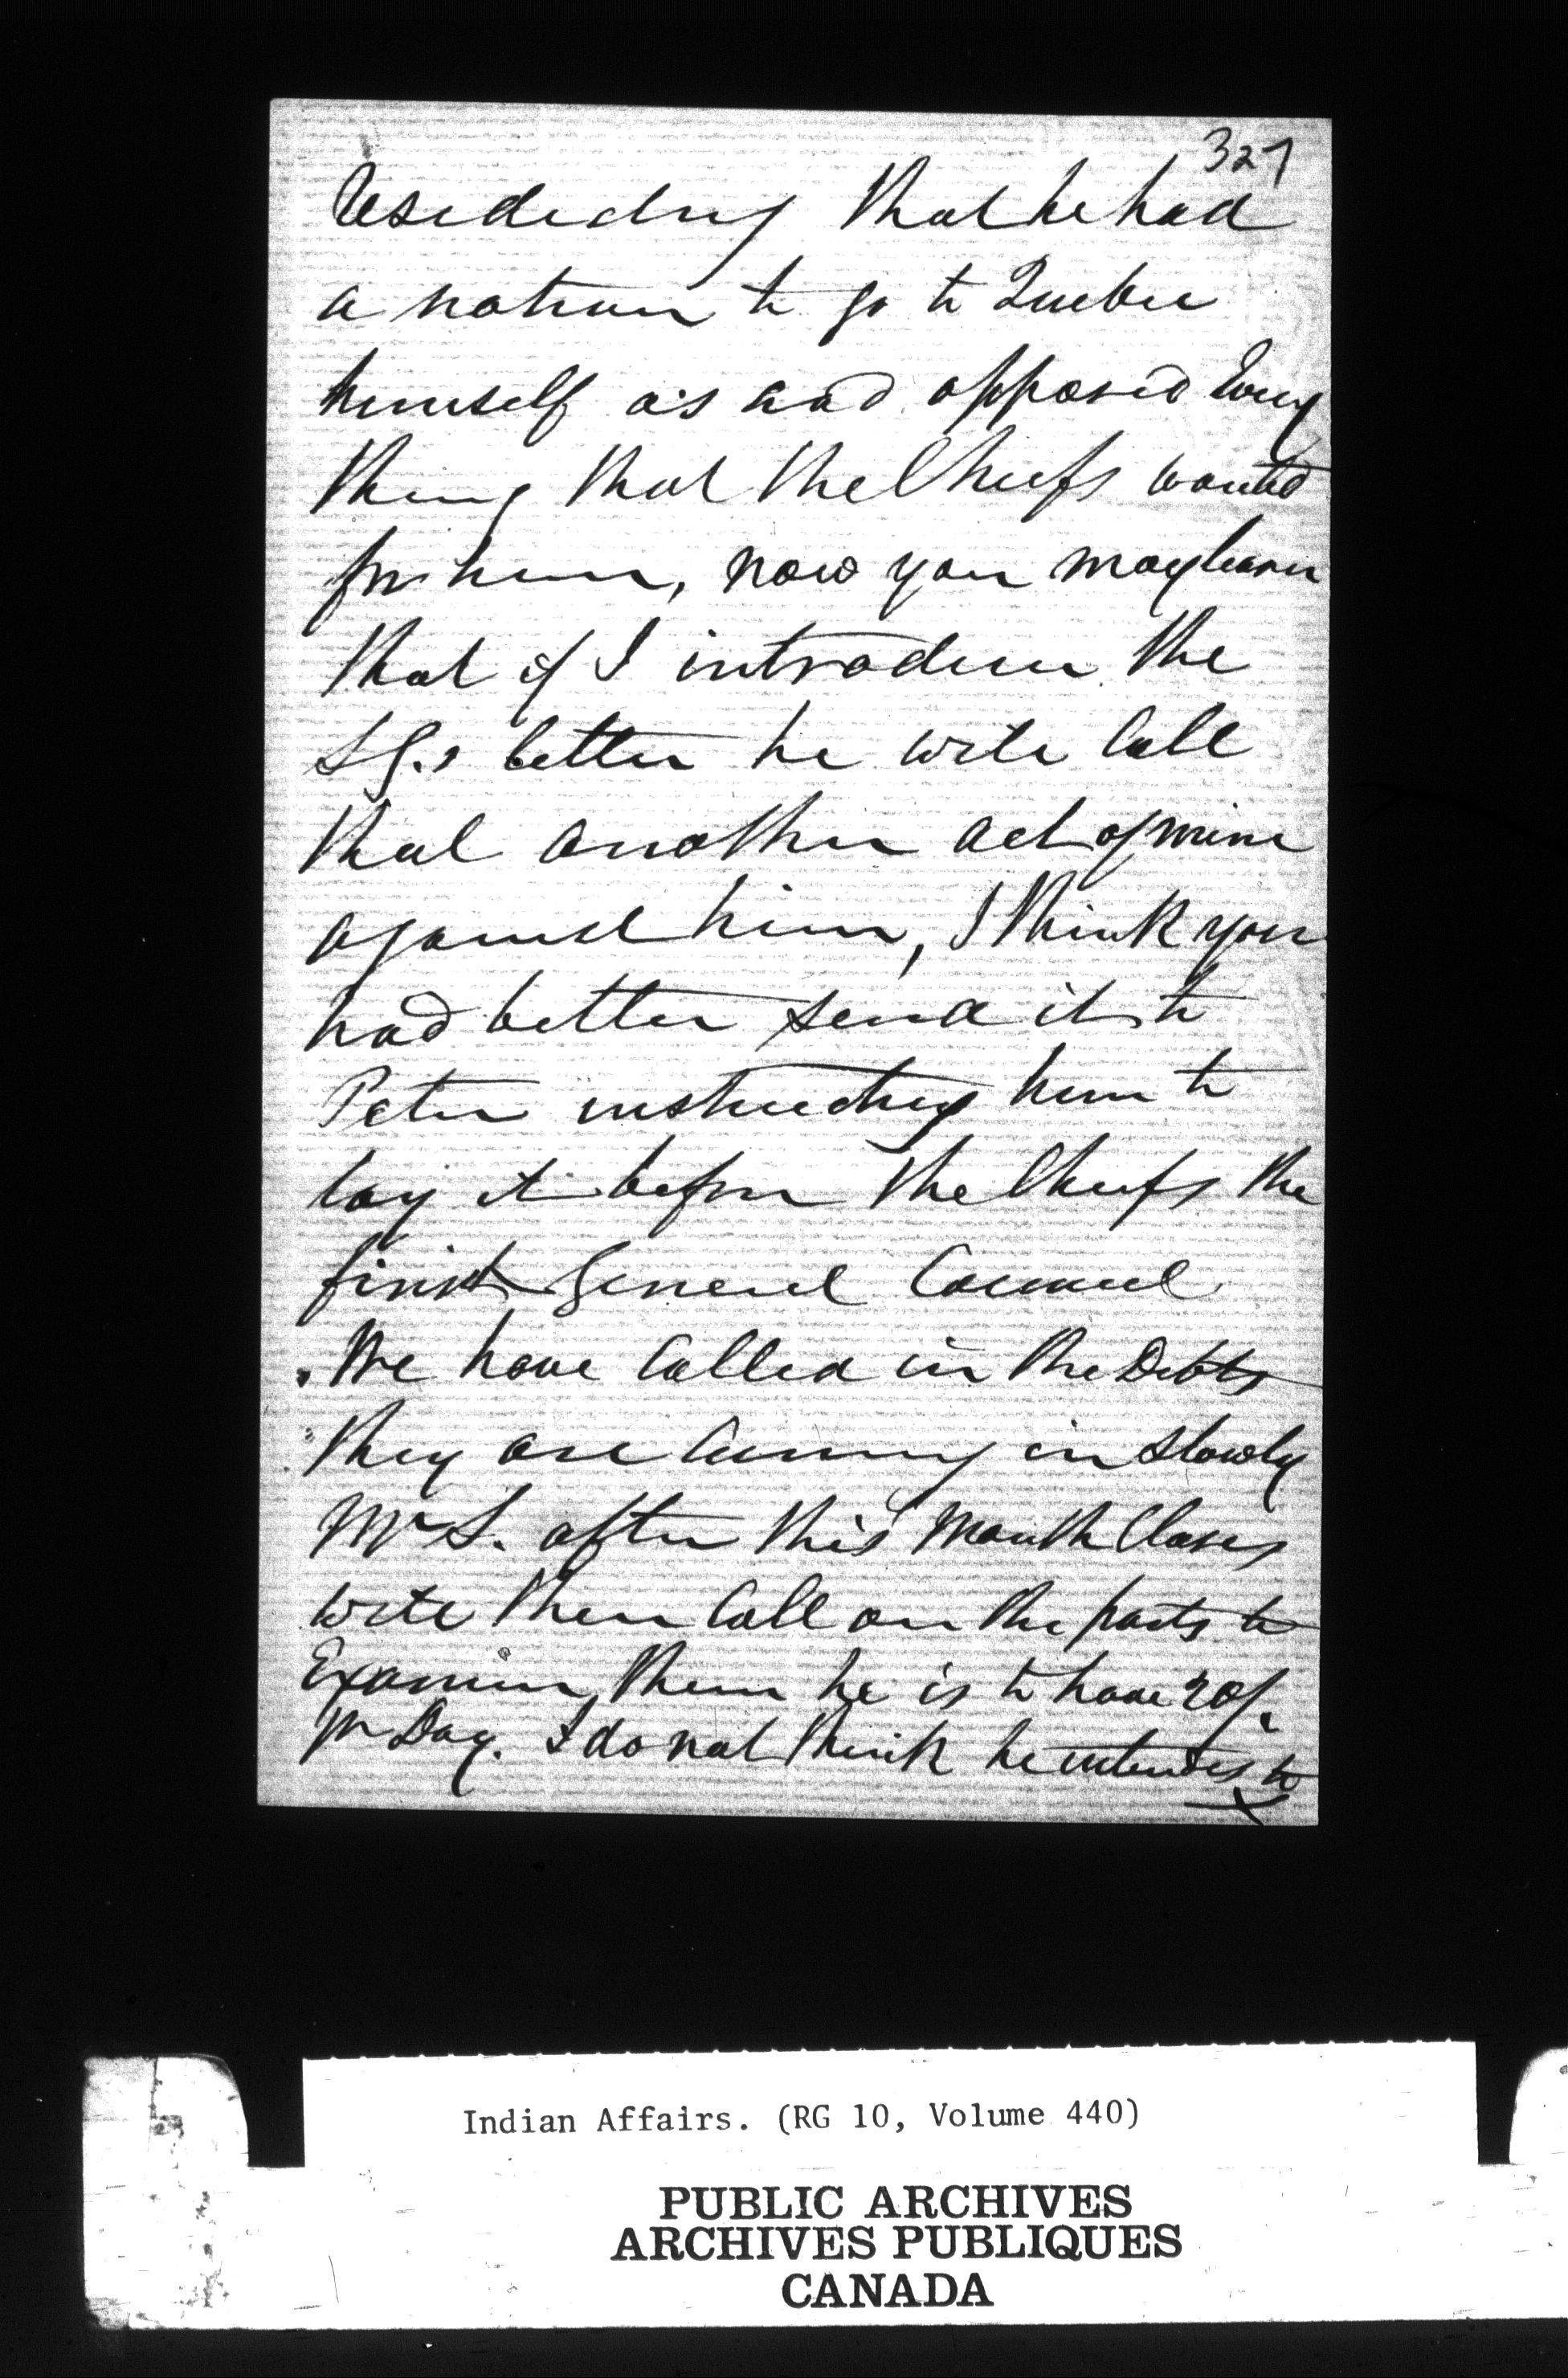 327
that he had
a notion to go to Quebec
himself as had opposed Every
thing that the Chiefs wanted
for him, now you may learn
that if I introduce the
SG.s letter he will Call
that another act of mine
against him, I think you
had better send it to
Peter instructing him to
lay it before the Chiefs the
first General Council
We have Called in the Debts
they are Coming in slowly
Mr S. after this Month Closes
will then Call on the parts to
Examin them he is to have 20/.
pr Day. I do not think he intends to
Indian Affairs. (RG 10, Volume 440)
PUBLIC ARCHIVES
ARCHIVES PUBLIQUES
CANADA